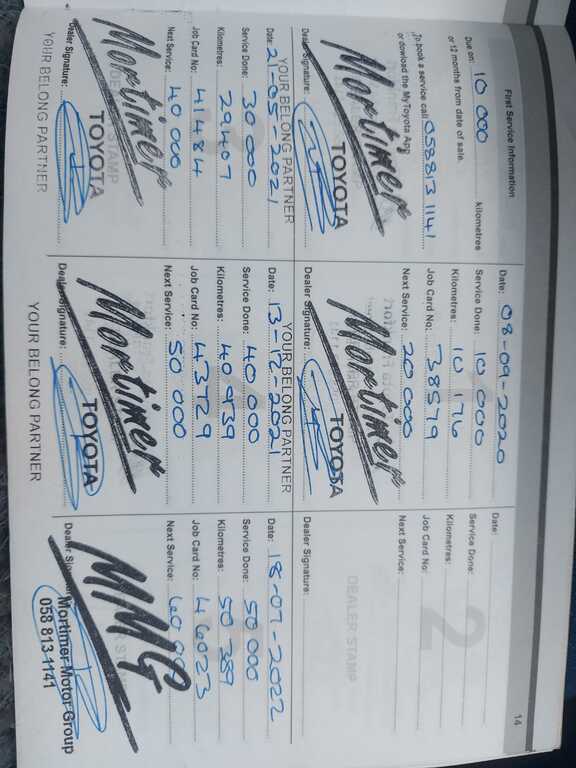 14
First Service Information
Due on: 10 000 kilometres
or 12 months from date of sale.
To book a service call 0588131141
or dowload the MyToyota App
Mortimer
Dealer Signature:
TOYOTA
YOUR BELONG PARTNER
1
Date: 08-09-2020
Service Done: 10 000
Kilometres: 10 176
Job Card No: 38579
Next Service: 20 000
Mortimer
Dealer Signature:
TOYOTA
YOUR BELONG PARTNER
2
Date:
Service Done:
Kilometres:
Job Card No:
Next Service:
DEALER STAMP
Dealer Signature:
Date: 21-05-2021
Service Done: 30 000
Kilometres: 29407
Job Card No: 41484
Next Service: 40 000
Mortimer
STAMP
Dealer Signature:
TOYOTA
YOUR BELONG PARTNER
Date: 13-12-2021
Service Done: 40 000
Kilometres: 40 939
Job Card No: 43729
Next Service: 50 000
Mortimer
Dealer Signature:
TOYOTA
YOUR BELONG PARTNER
Date: 18-07-2022
Service Done: 50 000
Kilometres: 50 389
Job Card No: 46023
Next Service: 60 000
MMG
Dealer
Mortimer Motor Group
058 813-1141